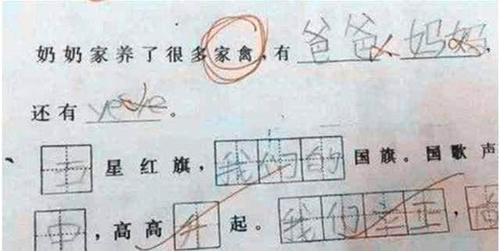 奶奶家养了很多家禽,有爸爸,妈妈,
还有yeye。
五星红旗,我们的国旗。国歌声
中,高高升起。我们立正,